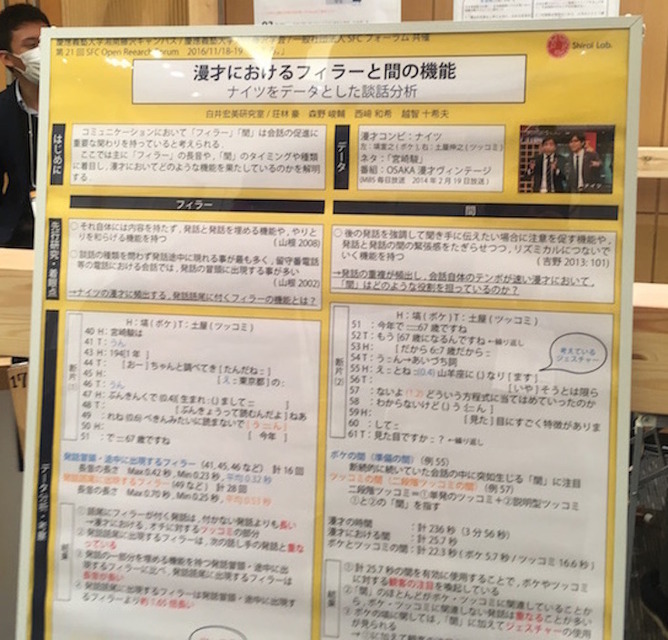 第 21 回 SFC Open Research Forum　2016/11/18-19
Shiroi Lab.
漫才におけるフィラーと間の機能
ナイツをデータとした談話分析
白井宏美研究室 / 荘林 豪　森野 崚輔　西﨑 和希　越智 十希夫
はじめに
コミュニケーションにおいて「フィラー」「間」は会話の促進に
重要な関わりを持っていると考えられる
ここでは主に「フィラー」の長音や、「間」のタイミングや種類
に着目し、漫才においてどのような機能を果たしているのかを解明
する
データ
漫才コンビ：ナイツ
左：塙宣之（ボケ）右：土屋伸之（ツッコミ）
ネタ：「宮崎駿」
番組：OSAKA 漫才ヴィンテージ
（MBS 毎日放送　2014 年 2 月 19 日放送）
先行研究・着眼点
フィラー
○ それ自体には内容を持たず，発話と発話を埋める機能や，やりと
りを和らげる機能を持つ　（山根 2008）
○ 談話の種類を問わず発話途中に現れる事が最も多く，留守番電話
等の電話における会話では，発話の冒頭に出現する事が多い
（山根 2002）
→ナイツの漫才に頻出する，発話語尾に付くフィラーの機能とは？
間
○ 後の発話を強調して聞き手に伝えたい場合に注意を促す機能や，
発話と発話の間の緊張感をたぎらせつつ，リズミカルにつないで
いく機能を持つ　（吉野 2013: 101）
→発話の重複が頻出し，会話自体のテンポが速い漫才において，
「間」はどのような役割を担っているのか？
データ分析・考察
断片(1)
H：塙（ボケ）T：土屋（ツッコミ）
40 H：宮崎駿は
41 T：うん
43 H：194[1 年 ]
44 T：　[おー] ちゃんと調べてき [ たんだね：]
45 H：　[ え：東京都 ] の：
46 T：うん
47 H：ぶんきんくで (0.4) 生まれ：( ) まして：：[　]
48 T：　[ ぶんきょうって読むんだよ ] ねあ
49　れね (0.6) べきんみたいに読まないで [ うーん ]
50 H：　[ 今年 ]
51　：で：：67 歳ですね
発話冒頭・途中に出現するフィラー（41, 45, 46 など）計 16 回
長音の長さ　Max 0.42 秒 , Min 0.23 秒 , 平均 0.32 秒
発話語尾に出現するフィラー（49 など）計 28 回
長音の長さ　Max 0.70 秒 , Min 0.25 秒 , 平均 0.53 秒
結果
① 語尾にフィラーが付く発話は，付かない発話よりも長い
→漫才における，オチに対するツッコミの部分
② 発話語尾に出現するフィラーは，次の話し手の発話と重な
っている
③ 発話の一部分を埋める機能を持つ発話冒頭・途中に出
現するフィラーに比べ，発話語尾に出現するフィラーは
長音が長い
→ 発話語尾に出現するフィラーは発話冒頭・途中に出現す
るフィラーより約 1.65 倍長い
断片(2)
H：塙（ボケ）T：土屋（ツッコミ）
51　：今年で：：67 歳ですね
52 T：もう [67 歳になるんですね ←繰り返し
53 H：　[ だから 6:7 歳だから：
54 T：う：ん→あいづち詞
55 H：え：とね：(0.4) 山羊座に ( ) なり [ ます ]
56 T：　[いや] そうとは限ら
57　：ないよ (1.2) どういう方程式に当てはめていったのか
58　：わからないけど ( ) う [：ん：]
59 H：　[ 見た ] 目にすごく特徴がありま
60　：して：
61 T：見た目ですか：？←繰り返し
考えている
ジェスチャー
ボケの間（準備の間）（例 55）
断続的に続いていた会話の中に突如生じる「間」に注目
ツッコミの間（二段階ツッコミの間）（例 57）
二段階ツッコミ＝①単発のツッコミ＋②説明型ツッコミ
①と②の「間」を指す
漫才の時間　：計 236 秒（3 分 56 秒）
漫才における間　：計 25.7 秒
ボケとツッコミの間：計 22.3 秒（ボケ 5.7 秒 / ツッコミ 16.6 秒）
結果
① 計 25.7 秒の間を有効に使用することで，ボケやツッコミ
に対する観客の注目を喚起している
② 「間」のほとんどがボケ・ツッコミに関連していることか
ら，ボケ・ツッコミに関連しない発話は重なることが多い
③ ボケの間に関しては，「間」に加えてジェスチャーの使用
が見られる